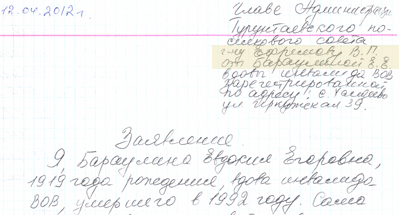 12.04.2012 г.
Главе Администрации
Турунтаевского по-
селкового совета
г-ну Ефремову В.П
от Бараулиной Е.Е.
вдовы инвалида ВОВ
зарегистрированной
по адресу: с.
ул Иркутская 39.
Заявление.
Я, Бараулина Евдокия Егоровна,
1919 года рождения, вдова инвалида
ВОВ, умершего в 1992 году. Сама